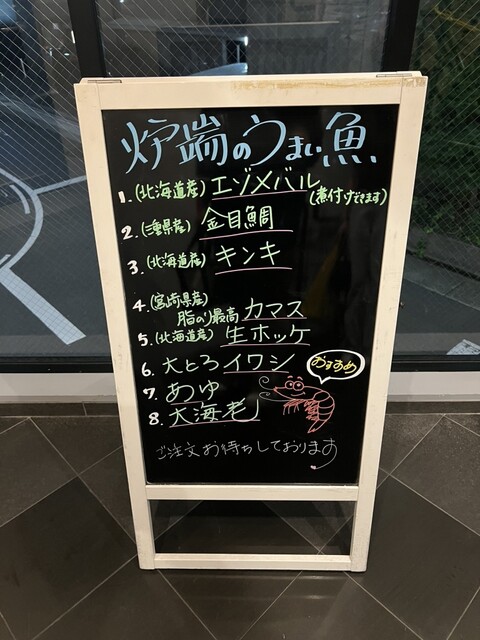 炉端のうまい魚
1. (北海道産) エゾメバル (煮付けできます)
2. (三重県産) 金目鯛
3. (北海道産) キンキ
4. (宮崎県産) 脂のり最高 カマス
5. (北海道産) 生ホッケ
6. 大とろイワシ
おすすめ
7. あゆ
8. 大海老
ご注文お待ちしております